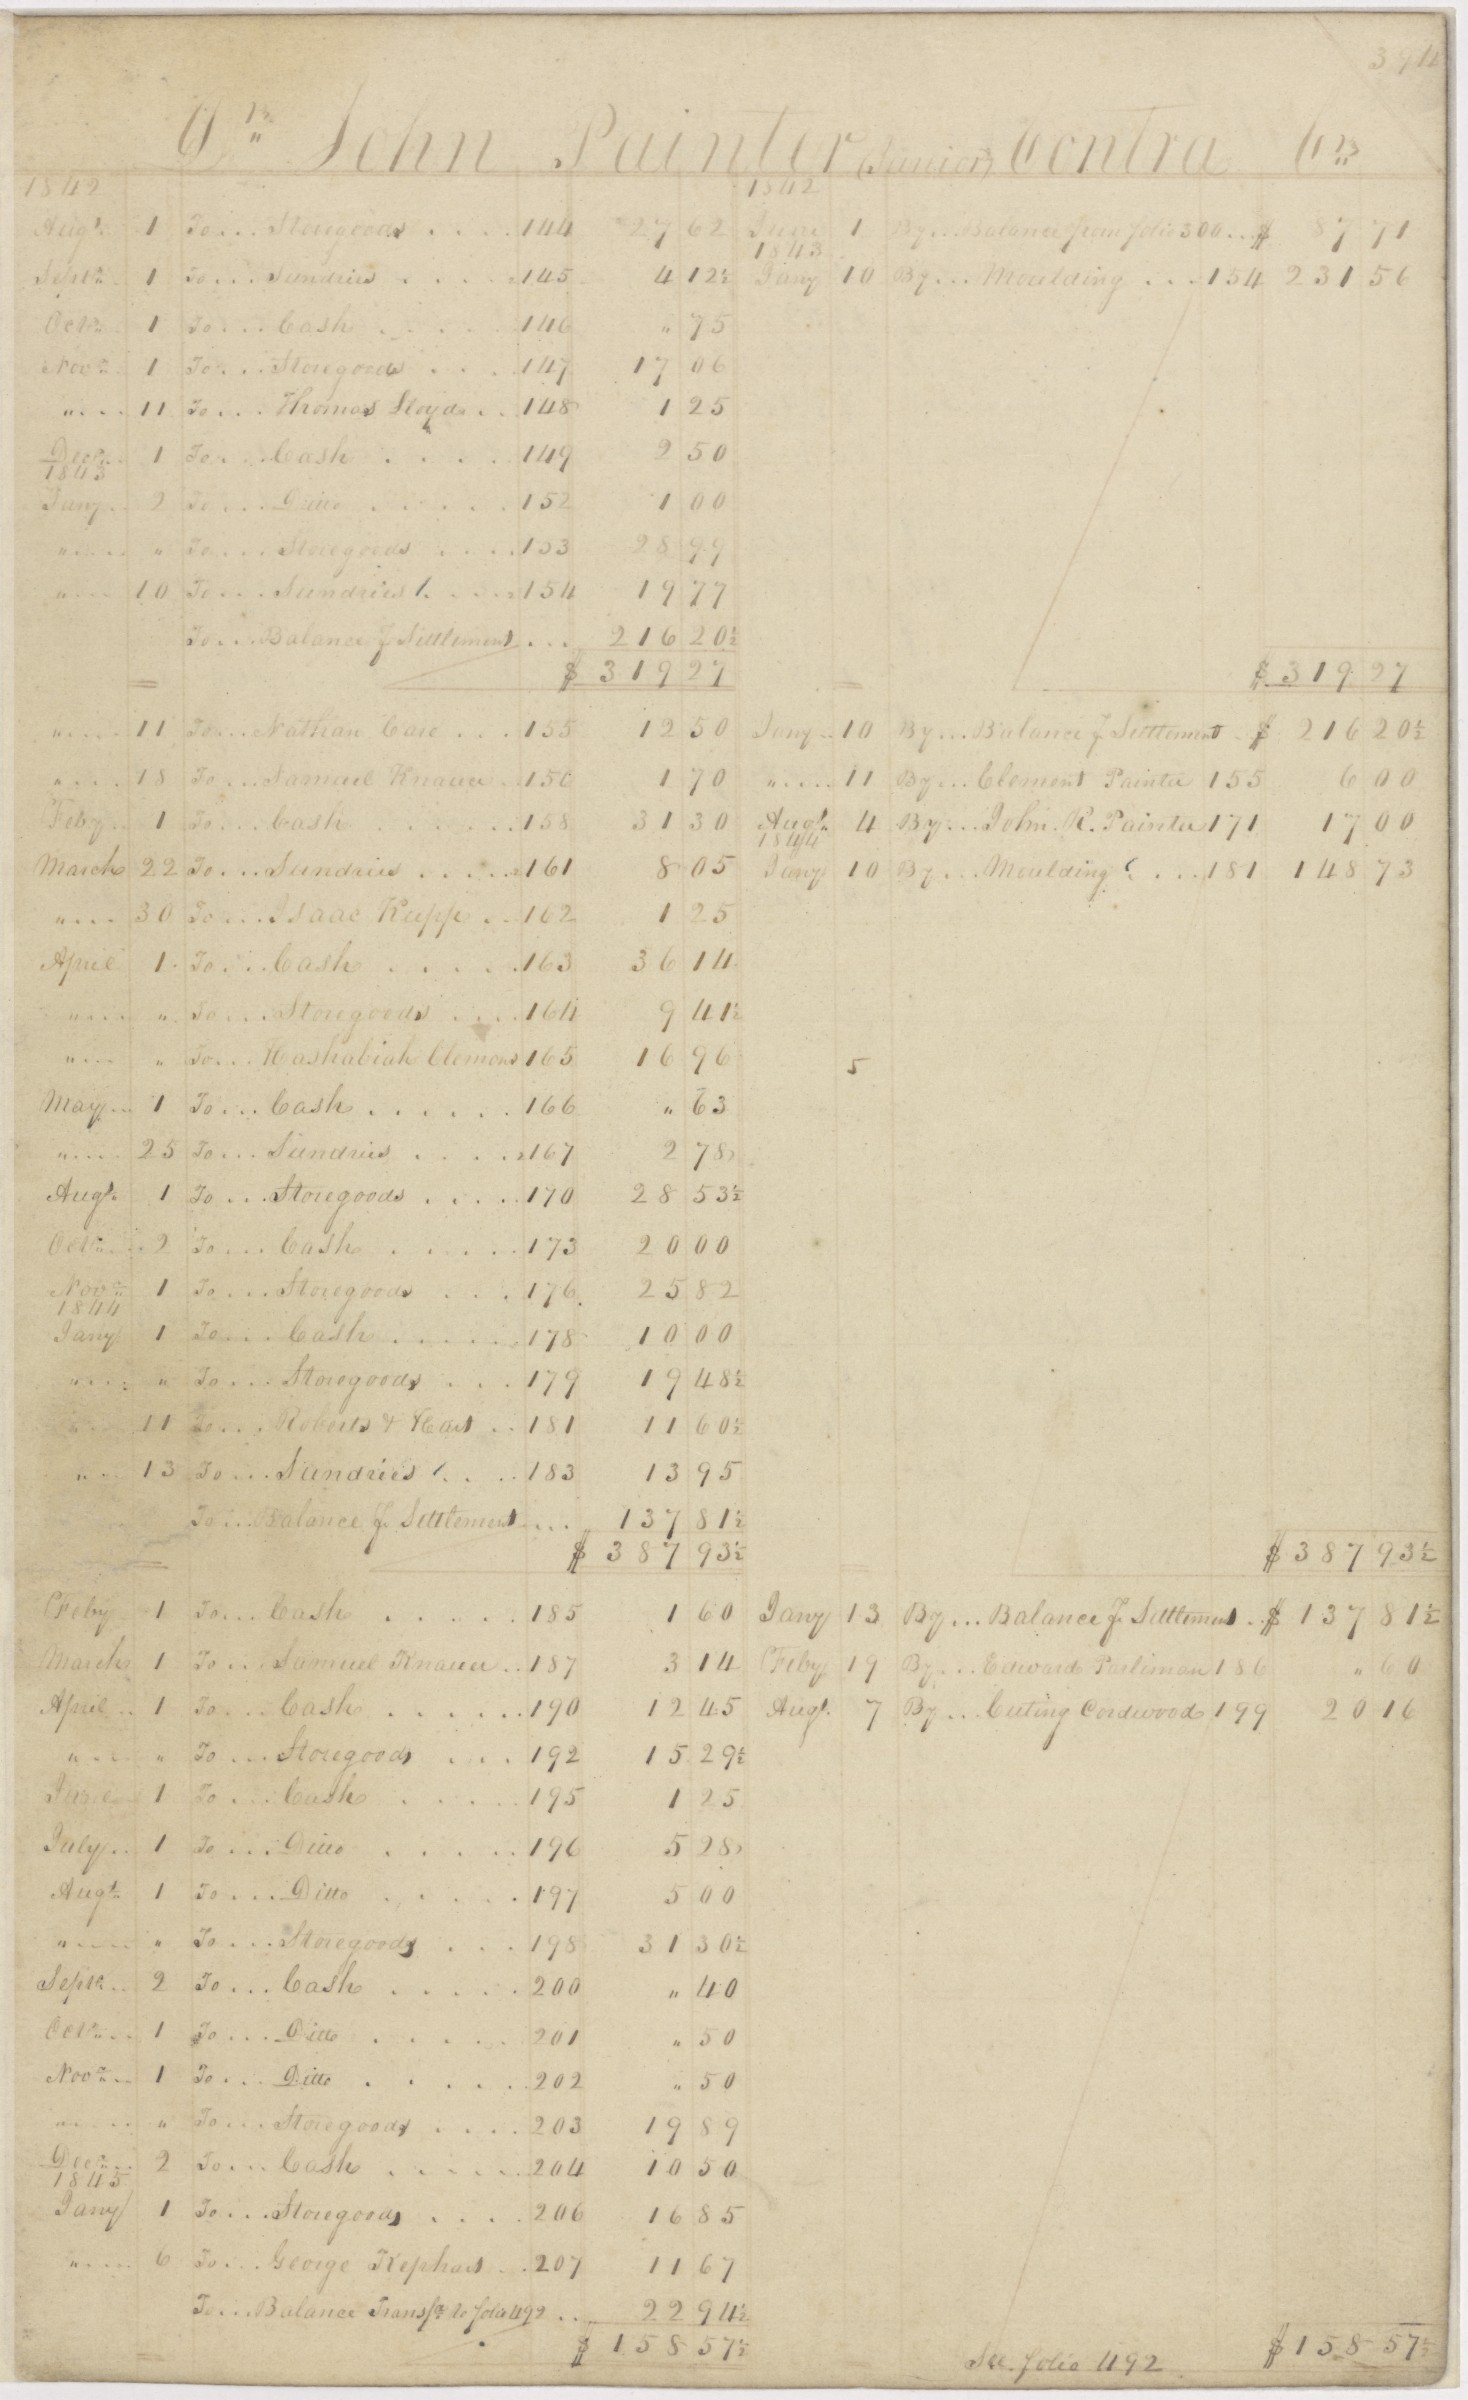 394
Dr. John Painter (Junior) Contra Cr.
1842 1842
Augt. 1 To... Storegoods .... 144 27 62 June 1 By... Balance from folio 300... $ 87 71
1843
Septr. 1 To... Sundries ..... 145 4 12½ Jany 10 By... Moulding ... 154 231 56
Octr. 1 To... Cash ..... 146 " 75
Novr. 1 To... Storegoods ... 147 17 06
".... 11 To.... Thomas Lloyd... 148 1 25
Decr. 1 To... Cash .... 149 2 50
1843
Jany. 2 To... Ditto ..... 152 1 00
"..... " To.... Storegoods .... 153 28 99
".... 10 To.... Sundries .... 154 19 77
To... Balance f Settlement ... 216 20½
$ 319 27 $ 319 27
"..... 11 To... Nathan Care ... 155 12 50 Jany.. 10 By... Balance f Settlement . $ 216 20½
".... 18 To... Samuel Knauer . 156 1 70 "..... 11 By... Clement Painter 155 6 00
Feby.. 1 To... Cash ...... 158 31 30 Augt. 4 By... John. R. Painter 171 17 00
1844
March 22 To... Sundries ..... 161 8 05 Jany 10 By.... Moulding .... 181 148 73
".... 30 To.... Isaac Kupp .. 162 1 25
April 1. To... Cash ..... 163 36 14
"..... " To... Storegoods .... 164 9 41½
".... " To... Hashabiah Clemons 165 16 96 5
May... 1 To... Cash ...... 166 " 63
"..... 25 To... Sundries ..... 167 2 78
Augt. 1 To... Storegoods ..... 170 28 53½
Octr... 2 To.... Cash ...... 173 20 00
Novr. 1 To.... Storegoods ... 176. 25 82
1844
Jany 1 To.... Cash ..... 178 10 00
".... " To.... Storegoods ... 179 19 48½
".... 11 To.... Roberts & Hart .. 181 11 60½
"... 13 To... Sundries .... 183 13 95
To... Balance f. Settlement.... 137 81½
$ 387 93½ $ 387 93½
Feby 1 To... Cash ..... 185 1 60 Jany 13 By... Balance f. Settlement .. $ 137 81½
March 1 To... Samuel Knauer .. 187 3 14 Feby 19 By... Edward Parliman 186 " 60
April.. 1 To.... Cash ...... 190 12 45 Augt. 7 By... Cutting Cordwood 199 20 16
".... " To... Storegoods .... 192 15 29½
June 1 To.... Cash ..... 195 1 25
July.. 1 To.... Ditto ..... 196 5 28
Augt. 1 To.... Ditto ..... 197 5 00
"..... " To.... Storegoods ... 198 31 30½
Septr.. 2 To... Cash ..... 200 " 40
Octr... 1 To.... Ditto ..... 201 " 50
Novr... 1 To... Ditto ...... 202 " 50
"..... " To... Storegoods .... 203 19 89
Decr... 2 To... Cash ...... 204 10 50
1845
Jany 1 To... Storegoods .... 206 16 85
"..... 6 To... George Kephart .. 207 11 67
To... Balance Transfr. to folio 492 .. 22 94½
$ 158 57½ See folio 492 $ 158 57½